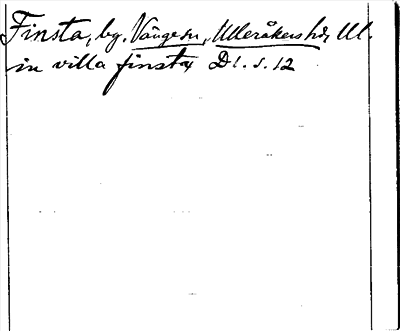 Finsta, by. Vänge sn, Ulleråkers hd, Ul.
in villa finsta D 1. s. 12